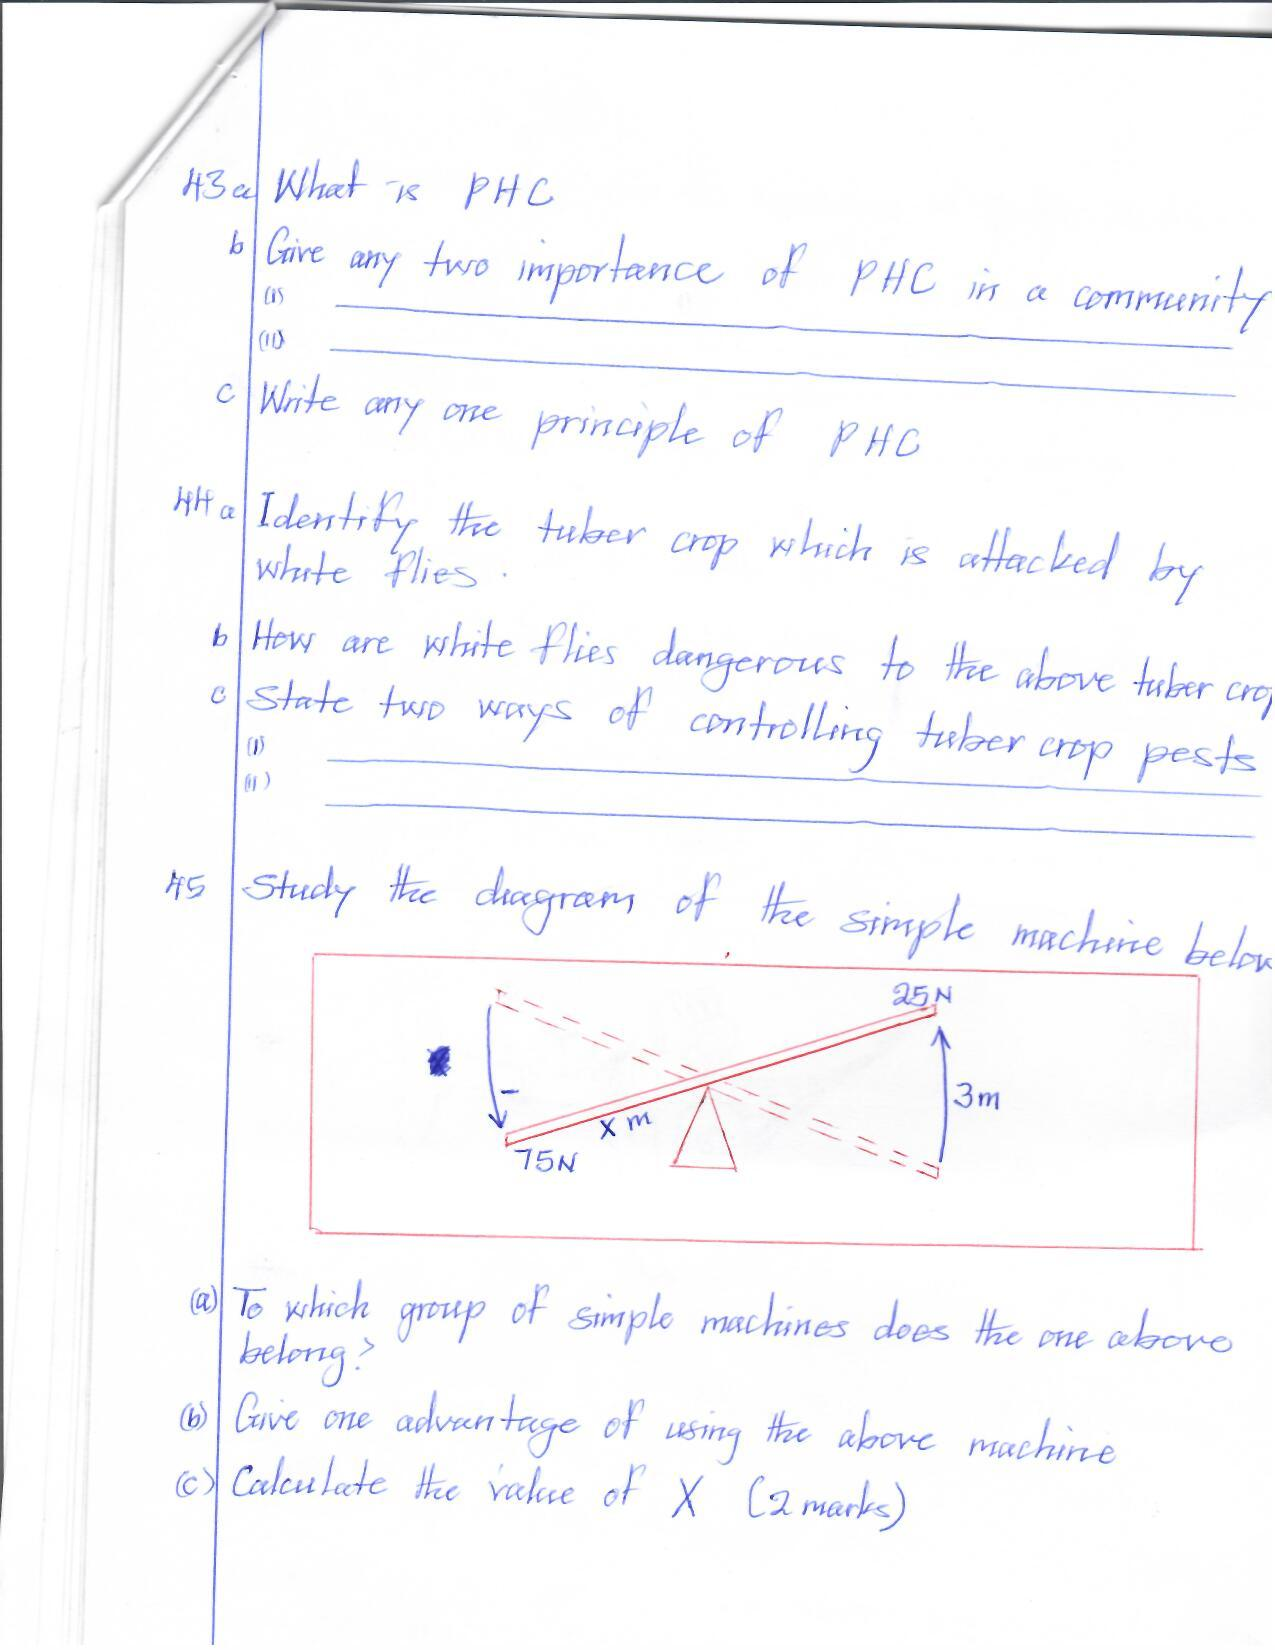 43 a What is PHC
b Give any two importance of PHC in a community
(i)
(ii)
c Write any one principle of PHC
44 a Identify the tuber crop which is attacked by
white flies.
b How are white flies dangerous to the above tuber crop
c State two ways of controlling tuber crop pests
(i)
(ii)
45 Study the diagram of the simple machine below
25N
3m
X m
75N
(a) To which group of simple machines does the one above
belong?
(b) Give one advantage of using the above machine
(c) Calculate the value of X (2 marks)